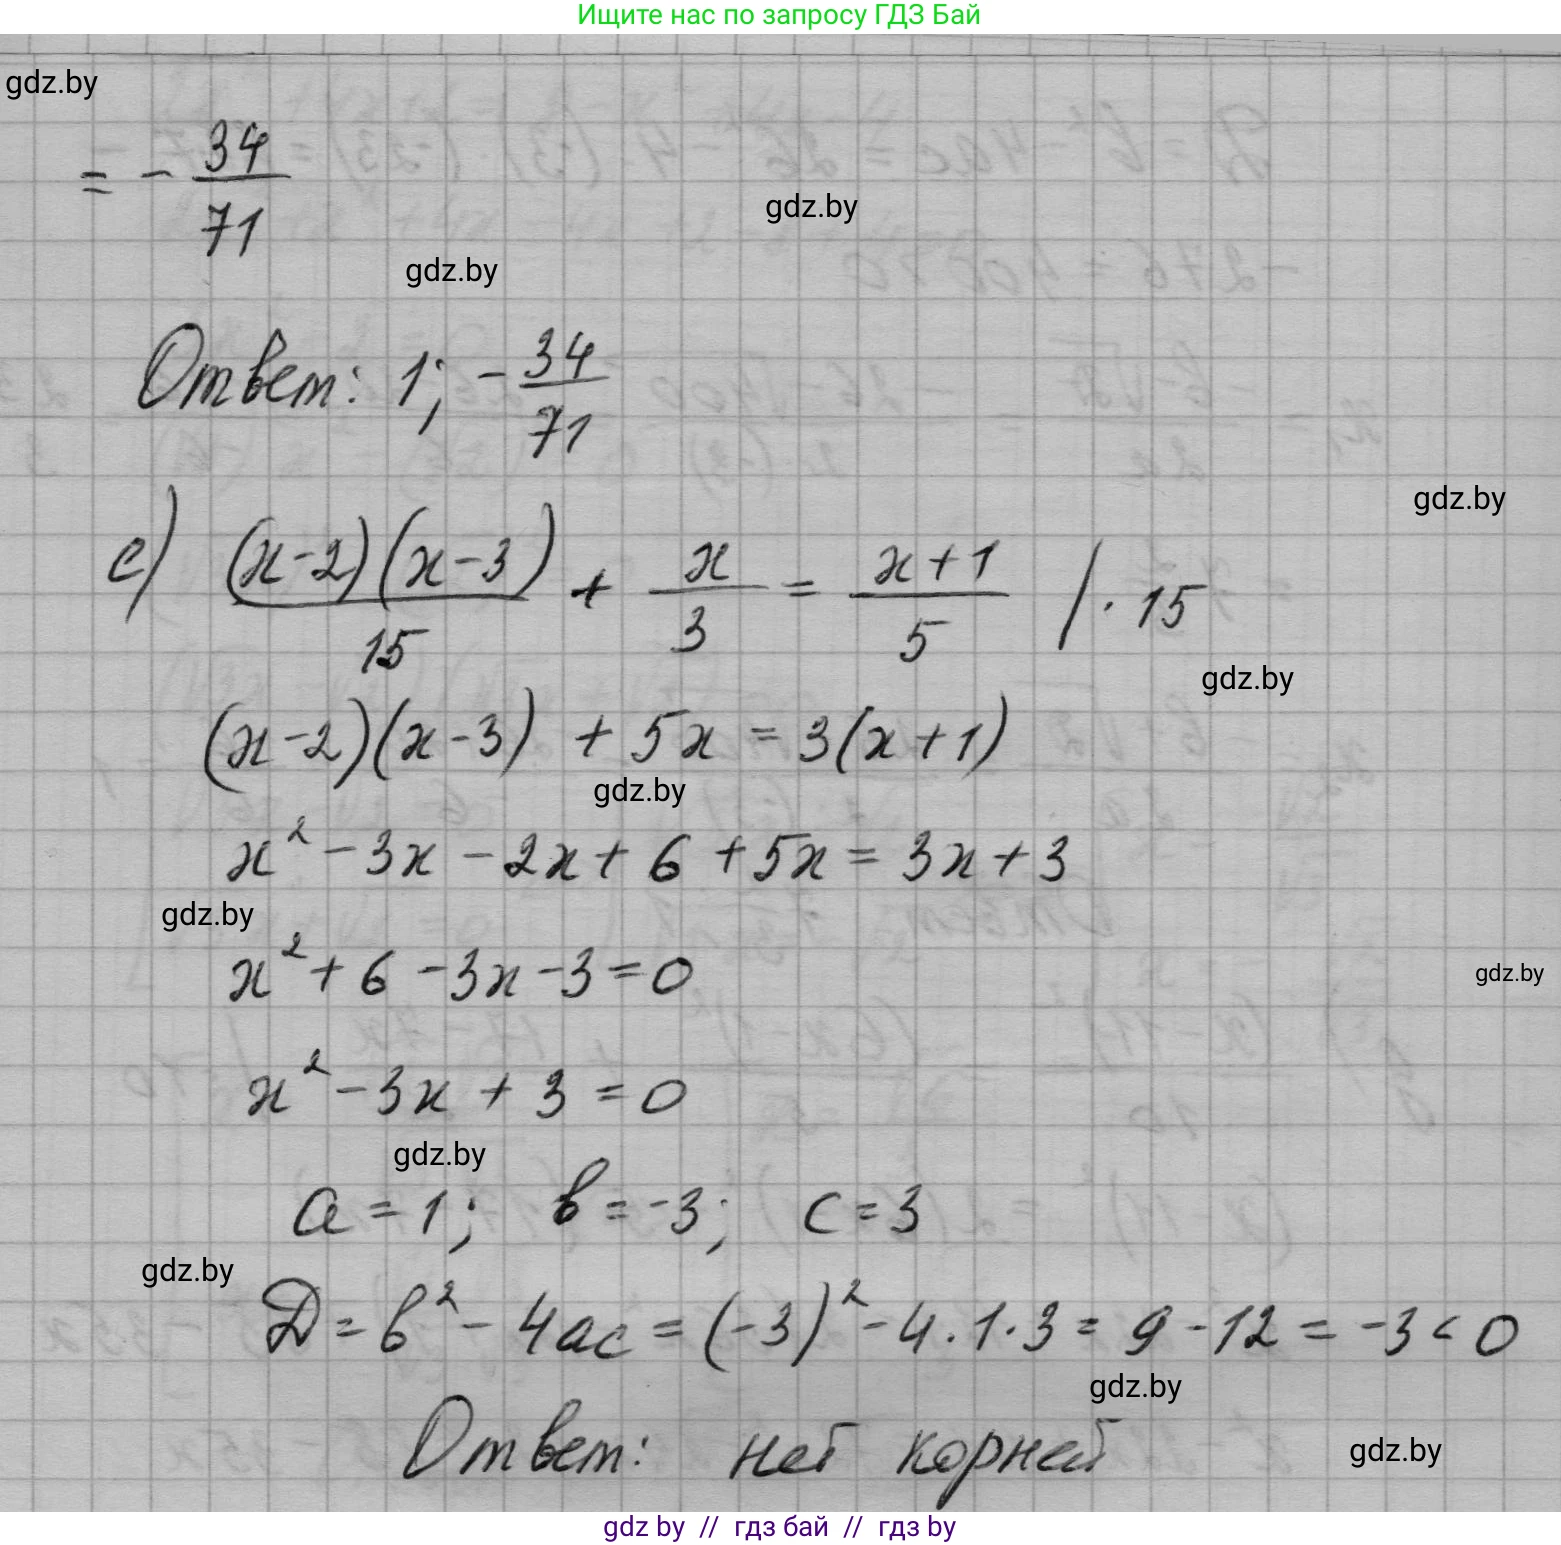 Ищите нас по запросу ГДЗ Бай
gdz.by
= - 34/71
gdz.by
gdz.by
Ответ: 1; - 34/71
gdz.by
е) (x-2)(x-3)/15 + x/3 = x+1/5 / · 15
gdz.by
(x-2)(x-3) + 5x = 3(x+1)
gdz.by
x² - 3x - 2x + 6 + 5x = 3x + 3
gdz.by
x² + 6 - 3x - 3 = 0
gdz.by
x² - 3x + 3 = 0
gdz.by
a = 1; b = -3; c = 3
gdz.by
D = b² - 4ac = (-3)² - 4·1·3 = 9 - 12 = -3 < 0
gdz.by
Ответ: нет корней
gdz.by
gdz by // гдз бай // gdz by